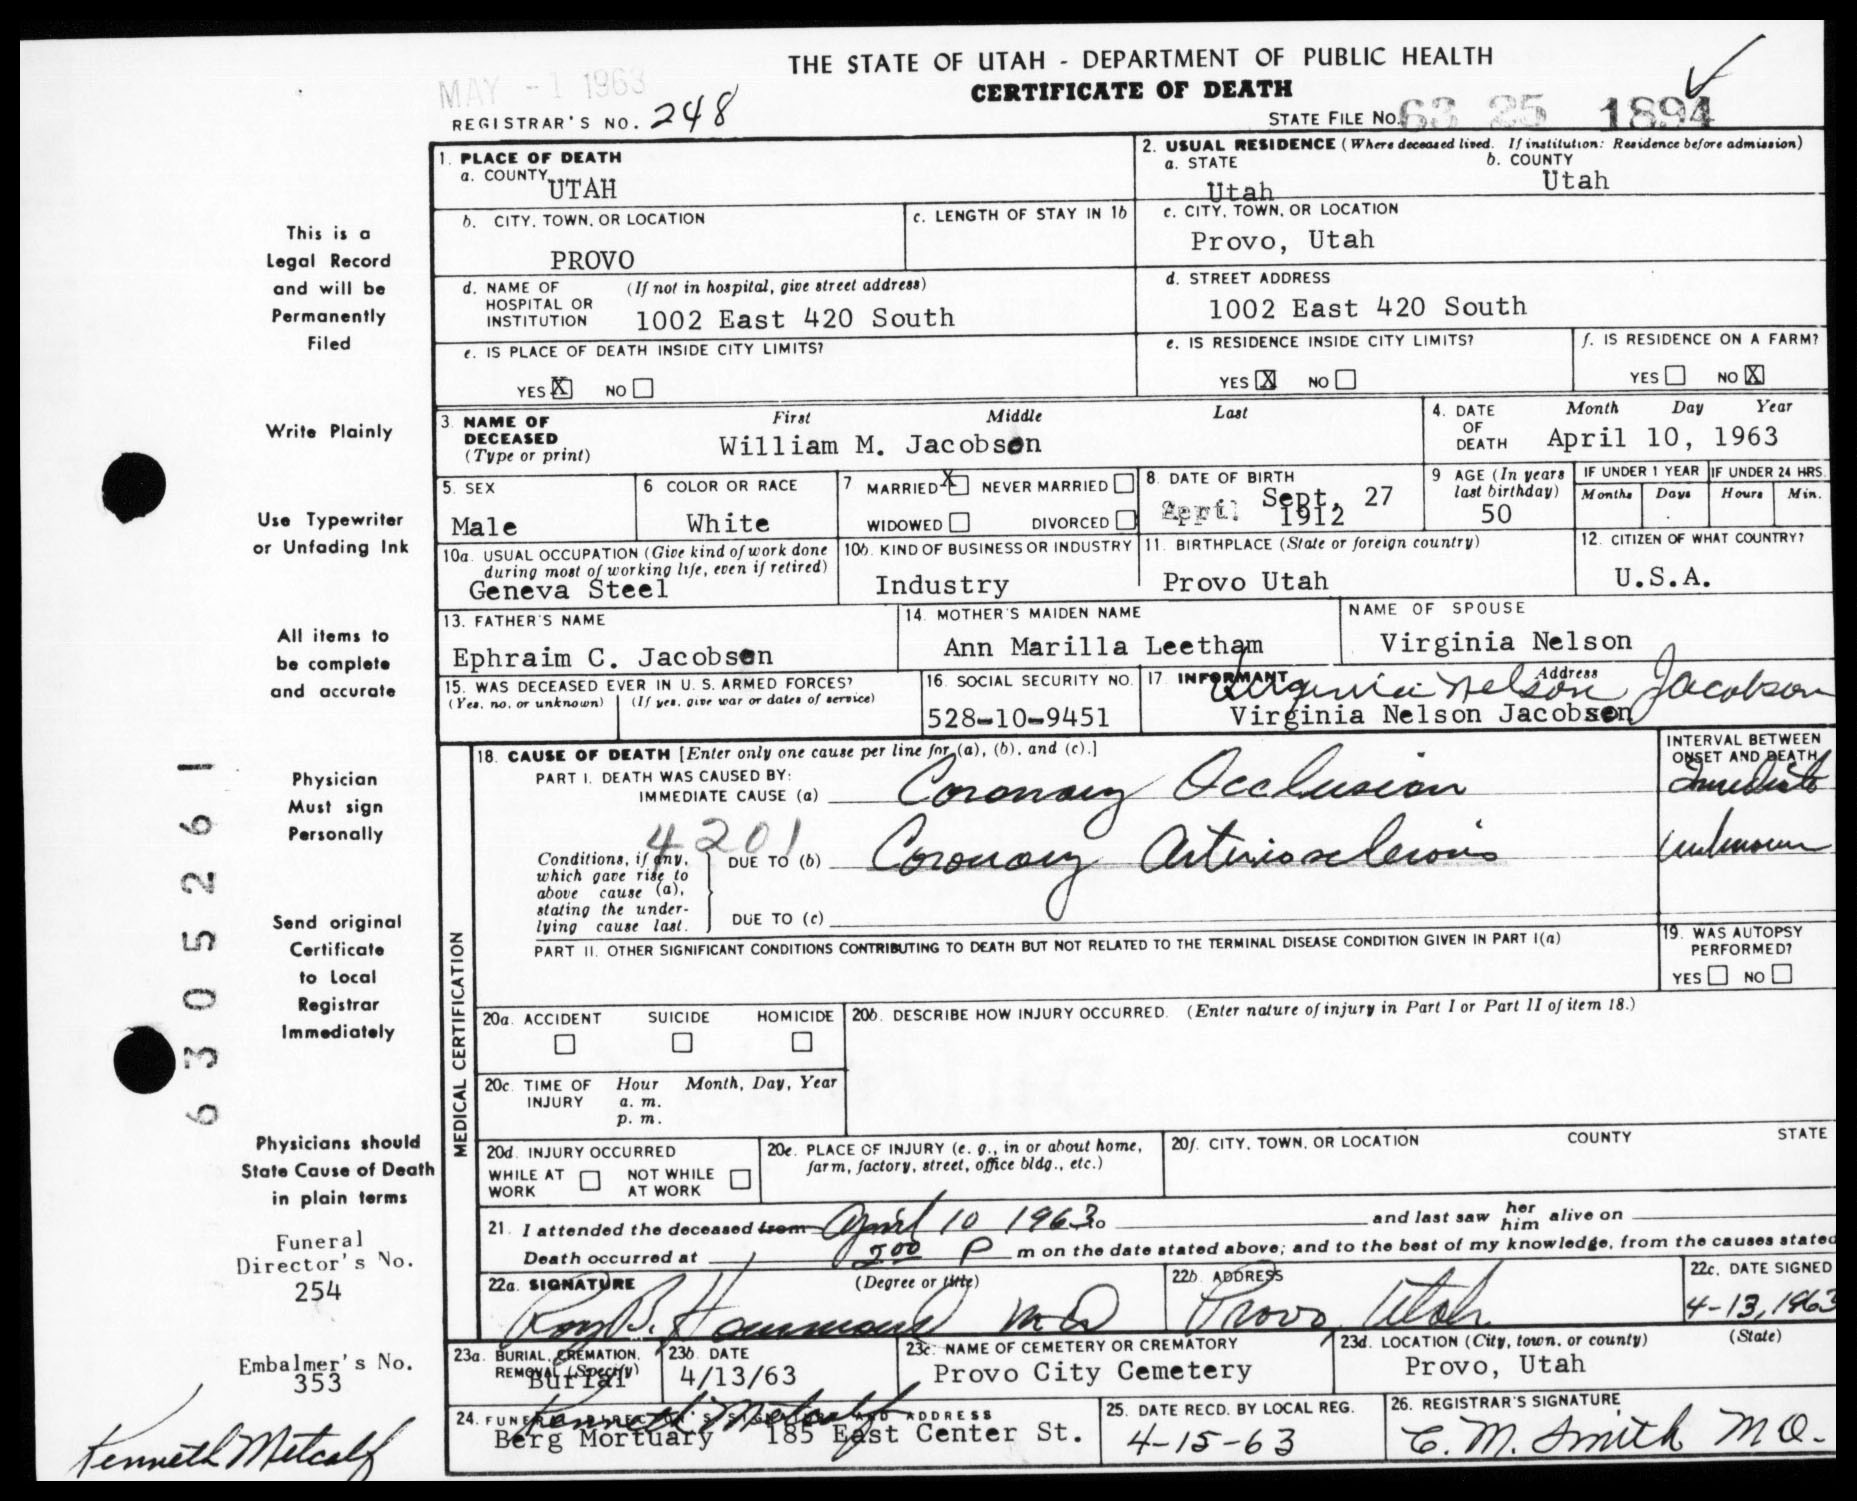 THE STATE OF UTAH - DEPARTMENT OF PUBLIC HEALTH
MAY -1 1963
CERTIFICATE OF DEATH
REGISTRAR'S NO. 248
STATE FILE NO. 63 25 1894
1. PLACE OF DEATH
a. COUNTY
UTAH
2. USUAL RESIDENCE (Where deceased lived. If institution: Residence before admission)
a. STATE
Utah
b. COUNTY
Utah
b. CITY, TOWN, OR LOCATION
PROVO
c. LENGTH OF STAY IN 1b
c. CITY, TOWN, OR LOCATION
Provo, Utah
d. NAME OF HOSPITAL OR INSTITUTION
(If not in hospital, give street address)
1002 East 420 South
d. STREET ADDRESS
1002 East 420 South
e. IS PLACE OF DEATH INSIDE CITY LIMITS?
YES X NO
e. IS RESIDENCE INSIDE CITY LIMITS?
YES X NO
f. IS RESIDENCE ON A FARM?
YES NO X
3. NAME OF DECEASED (Type or print)
First Middle Last
William M. Jacobson
4. DATE OF DEATH
Month Day Year
April 10, 1963
5. SEX
Male
6 COLOR OR RACE
White
7 MARRIED X NEVER MARRIED
WIDOWED DIVORCED
8. DATE OF BIRTH
April Sept, 27
1912
9 AGE (In years last birthday)
50
IF UNDER 1 YEAR
Months Days
IF UNDER 24 HRS.
Hours Min.
10a. USUAL OCCUPATION (Give kind of work done during most of working life, even if retired)
Geneva Steel
10b. KIND OF BUSINESS OR INDUSTRY
Industry
11. BIRTHPLACE (State or foreign country)
Provo Utah
12. CITIZEN OF WHAT COUNTRY?
U.S.A.
13. FATHER'S NAME
Ephraim C. Jacobsen
14. MOTHER'S MAIDEN NAME
Ann Marilla Leetham
NAME OF SPOUSE
Virginia Nelson
15. WAS DECEASED EVER IN U. S. ARMED FORCES?
(Yes, no, or unknown) (If yes, give war or dates of service)
16. SOCIAL SECURITY NO.
528-10-9451
17 INFORMANT Address
Virginia Nelson Jacobson
Virginia Nelson Jacobsen
MEDICAL CERTIFICATION
18. CAUSE OF DEATH [Enter only one cause per line for (a), (b), and (c).]
PART I. DEATH WAS CAUSED BY:
IMMEDIATE CAUSE (a) Coronary Occlusion
INTERVAL BETWEEN ONSET AND DEATH
Immediate
4201
Conditions, if any, which gave rise to above cause (a), stating the underlying cause last.
DUE TO (b) Coronary Arteriosclerosis
unknown
DUE TO (c)
PART II. OTHER SIGNIFICANT CONDITIONS CONTRIBUTING TO DEATH BUT NOT RELATED TO THE TERMINAL DISEASE CONDITION GIVEN IN PART I(a)
19. WAS AUTOPSY PERFORMED?
YES NO
20a. ACCIDENT SUICIDE HOMICIDE
20b. DESCRIBE HOW INJURY OCCURRED. (Enter nature of injury in Part I or Part II of item 18.)
20c. TIME OF INJURY
Hour Month, Day, Year
a. m.
p. m.
20d. INJURY OCCURRED
WHILE AT WORK NOT WHILE AT WORK
20e. PLACE OF INJURY (e. g., in or about home, farm, factory, street, office bldg., etc.)
20f. CITY, TOWN, OR LOCATION COUNTY STATE
21. I attended the deceased from April 10 1963 to and last saw her him alive on
Death occurred at 2:00 P m on the date stated above; and to the best of my knowledge, from the causes stated
22a. SIGNATURE (Degree or title)
Roy B. Hammond MD
22b. ADDRESS
Provo Utah
22c. DATE SIGNED
4-13, 1963
23a. BURIAL, CREMATION, REMOVAL (Specify)
Burial
23b. DATE
4/13/63
23c. NAME OF CEMETERY OR CREMATORY
Provo City Cemetery
23d. LOCATION (City, town, or county) (State)
Provo, Utah
24. FUNERAL DIRECTOR'S SIGNATURE AND ADDRESS
Kenneth Metcalf
Berg Mortuary 185 East Center St.
25. DATE RECD. BY LOCAL REG.
4-15-63
26. REGISTRAR'S SIGNATURE
C. M. Smith MD.
This is a
Legal Record
and will be
Permanently
Filed
Write Plainly
Use Typewriter
or Unfading Ink
All items to
be complete
and accurate
Physician
Must sign
Personally
Send original
Certificate
to Local
Registrar
Immediately
Physicians should
State Cause of Death
in plain terms
Funeral
Director's No.
254
Embalmer's No.
353
Kenneth Metcalf
6305261